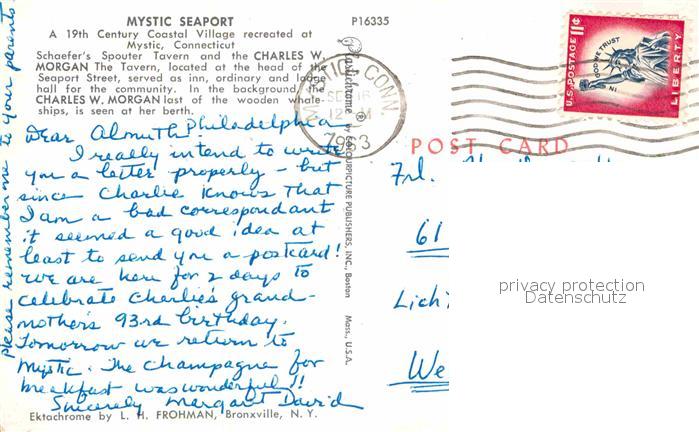 MYSTIC SEAPORT
P16335
A 19th Century Coastal Village recreated at
Mystic, Connecticut
Schaefer's Spouter Tavern and the CHARLES W.
MORGAN The Tavern, located at the head of the
Seaport Street, served as inn, ordinary and lodge
hall for the community. In the background, the
CHARLES W. MORGAN last of the wooden whale-
ships, is seen at her berth.
Dear Almuth: Philadelphia
I really intend to write
you a letter properly - but
since Charlie knows that
I am a bad correspondant
it seemed a good idea at
least to send you a postcard!
We are here for 2 days to
celebrate Charlie's grand-
mother's 93rd birthday.
Tomorrow we return to
Mystic. The champagne for
breakfast was wonderful!!
Sincerely Margaret David
Please remember me to your parents
Ektachrome by L. H. FROHMAN, Bronxville, N. Y.
Plastichrome ® by COLOURPICTURE PUBLISHERS, INC., Boston Mass., U.S.A.
CONN.
1963
U.S. POSTAGE 11¢
IN GOD WE TRUST
LIBERTY
POST CARD
Frl.
61
Lich
We
privacy protection
Datenschutz